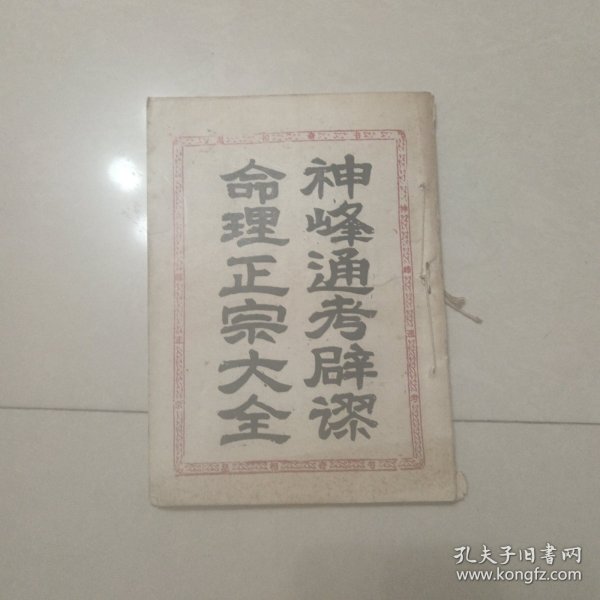 神峰通考辟谬
命理正宗大全
孔夫子旧书网
www.kongfz.com